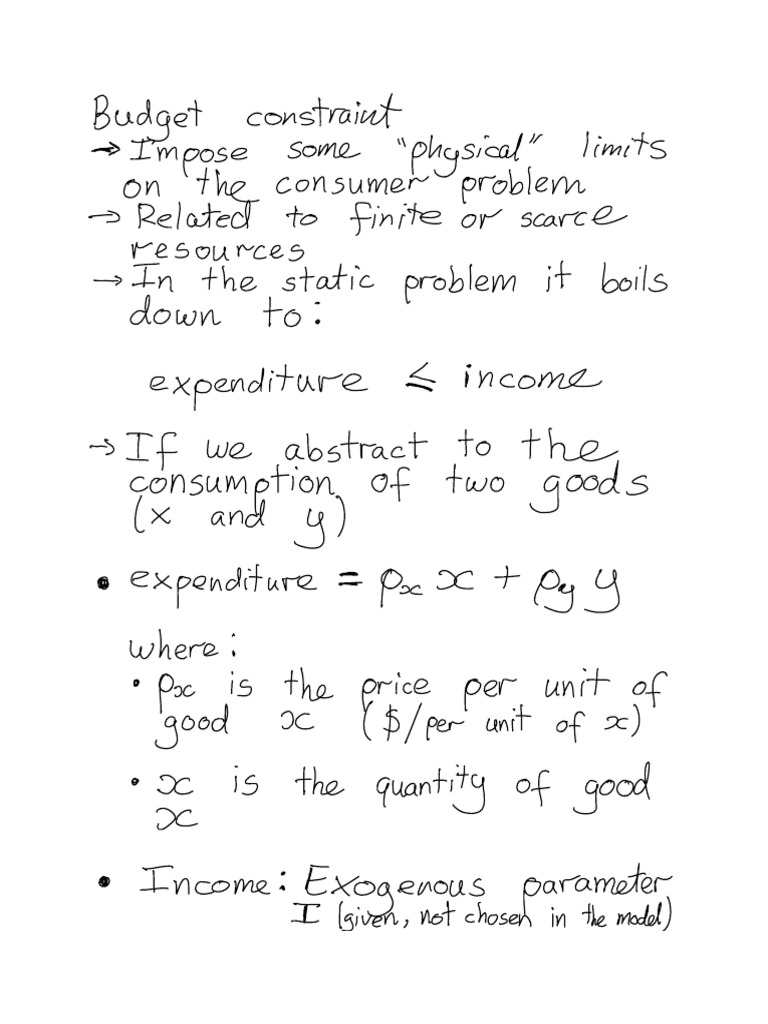 Budget constraint
→ Impose some "physical" limits
on the consumer problem
→ Related to finite or scarce
resources
→ In the static problem it boils
down to:
expenditure ≤ income
→ If we abstract to the
consumption of two goods
(x and y)
• expenditure = pₓ x + p_y y
where:
• pₓ is the price per unit of
good x ($/per unit of x)
• x is the quantity of good
x
• Income: Exogenous parameter
I (given, not chosen in the model)